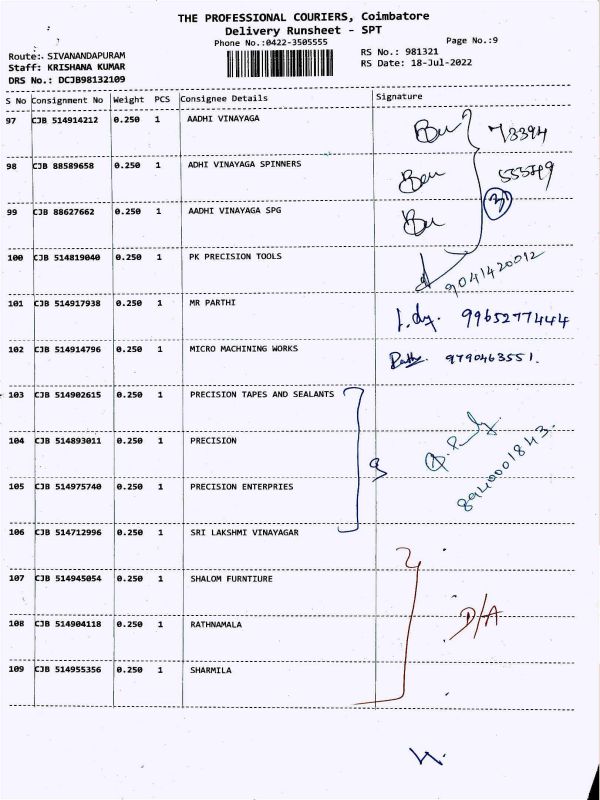 THE PROFESSIONAL COURIERS, Coimbatore
Delivery Runsheet - SPT
Phone No.:0422-3505555
Page No.:9
Route:. SIVANANDAPURAM
RS No.: 981321
Staff: KRISHANA KUMAR
RS Date: 18-Jul-2022
DRS No.: DCJB98132109
S No Consignment No Weight PCS Consignee Details Signature
97 CJB 514914212 0.250 1 AADHI VINAYAGA 73394
98 CJB 88589658 0.250 1 ADHI VINAYAGA SPINNERS
99 CJB 88627662 0.250 1 AADHI VINAYAGA SPG
100 CJB 514819040 0.250 1 PK PRECISION TOOLS 9041420012
101 CJB 514917938 0.250 1 MR PARTHI 9965277444
102 CJB 514914796 0.250 1 MICRO MACHINING WORKS 9790463551.
103 CJB 514902615 0.250 1 PRECISION TAPES AND SEALANTS
104 CJB 514893011 0.250 1 PRECISION
105 CJB 514975740 0.250 1 PRECISION ENTERPRIES 8940001843.
106 CJB 514712996 0.250 1 SRI LAKSHMI VINAYAGAR
107 CJB 514945054 0.250 1 SHALOM FURNTIURE
108 CJB 514904118 0.250 1 RATHNAMALA D/A
109 CJB 514955356 0.250 1 SHARMILA